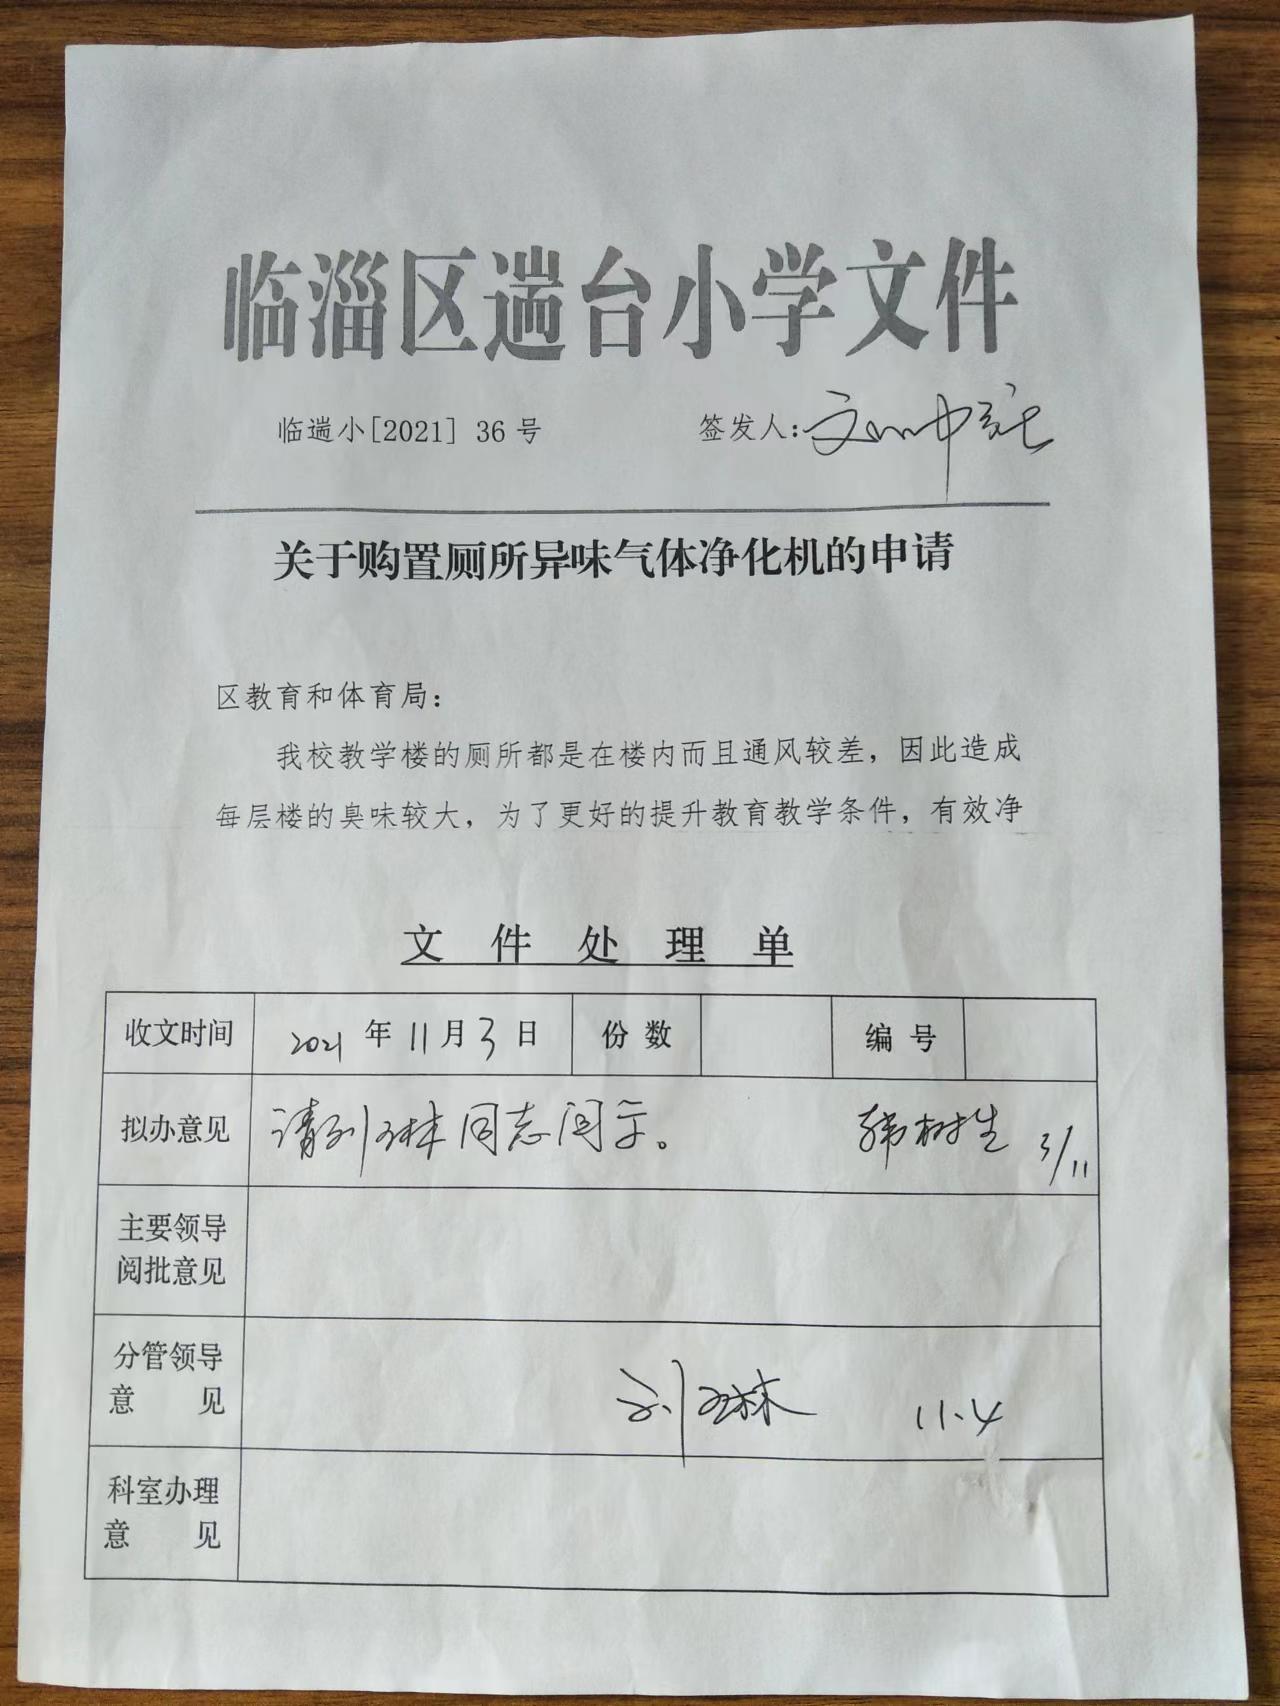 临淄区遄台小学文件
临遄小[2021] 36号
签发人:
关于购置厕所异味气体净化机的申请
区教育和体育局：
我校教学楼的厕所都是在楼内而且通风较差，因此造成
每层楼的臭味较大，为了更好的提升教育教学条件，有效净
文件处理单
收文时间 2021年11月3日 份数 编号
拟办意见 请刘琳同志阅示。 韩树生 3/11
主要领导
阅批意见
分管领导
意见
刘琳 11.4
科室办理
意见